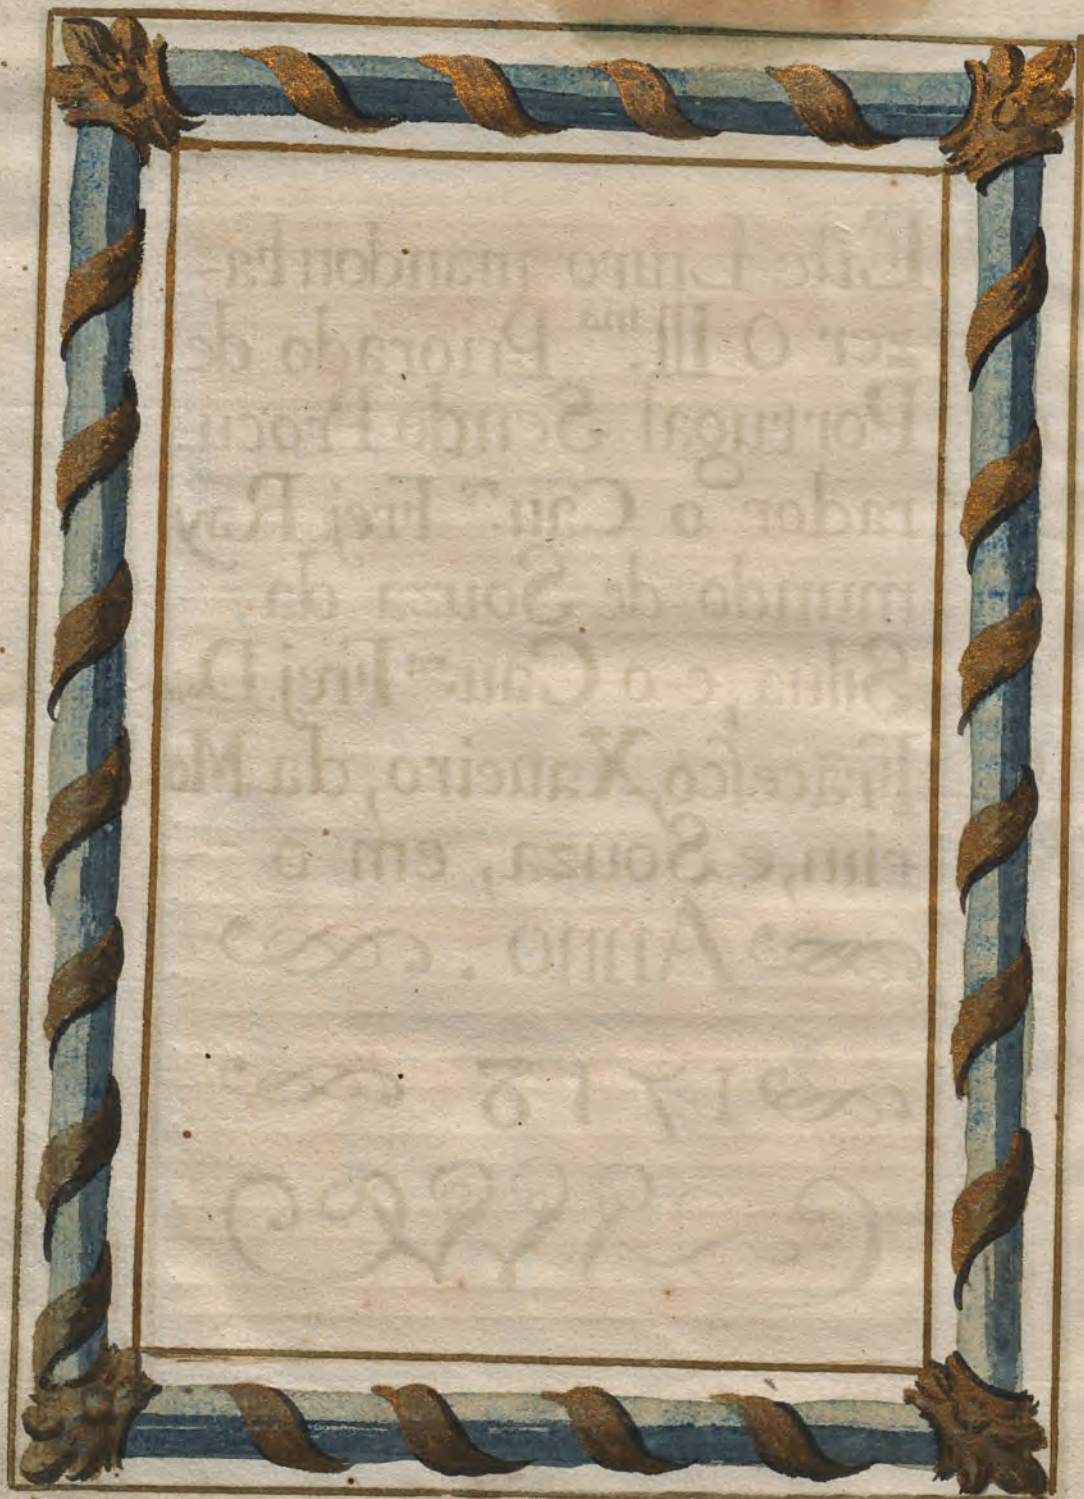 Este Liuro mandou fa-
zer O Ill.ma Priorado de
Portugal Sendo Procu-
rador o Cau.ro Frej Ray
mundo de Souza da
Silua, e o Cau.ro Frej D.
Frãcesco Xaueiro, da
e, Souza, em o
Anno.
1718